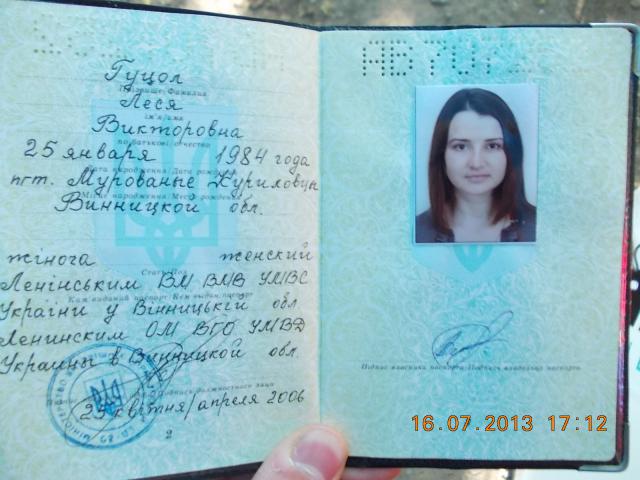 Гуцол
Прізвище/Фамилия
Леся
ім'я/имя
Викторовна
по батькові/отчество
25 января 1984 года
Дата народження/Дата рождения
пгт. Мурованые Куриловцы
Місце народження/Место рождения
Винницкой обл.
жіноча женский
Стать/Пол
Ленінським ВМ ВМВ УМВС
Ким виданий паспорт/Кем выдан паспорт
України у Вінницькій обл
Ленинским ОМ ВГО УМВД
Украины в Винницкой обл.
25 квітня/апреля 2006
2
Підпис власника паспорта/Подпись владельца паспорта
16.07.2013 17:12